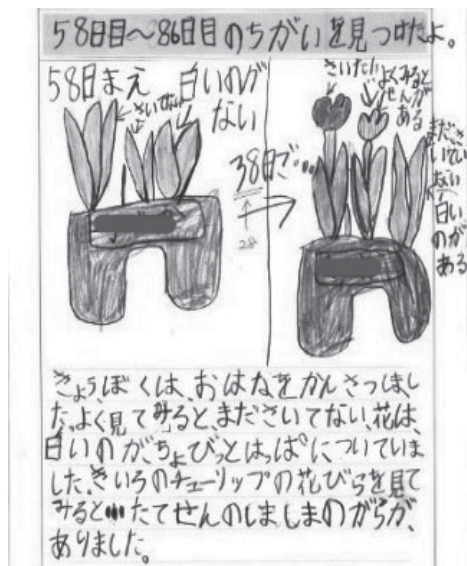 58日目～86日目のちがいを見つけたよ。
58日まえ 白いのが
ない
さいてない
38日ご
28
さいた!!
よくみると
せんが
ある
まださ
いてい
ない
白い
のが
ある
きょう、ぼくは、おはなをかんさつしまし
た。よく見てみると、まださいてない、花は、
白いのが、ちょびっとはっぱについていま
した。きいろのチューリップの花びらを見て
みると…たてせんのしましまのがらが、
ありました。